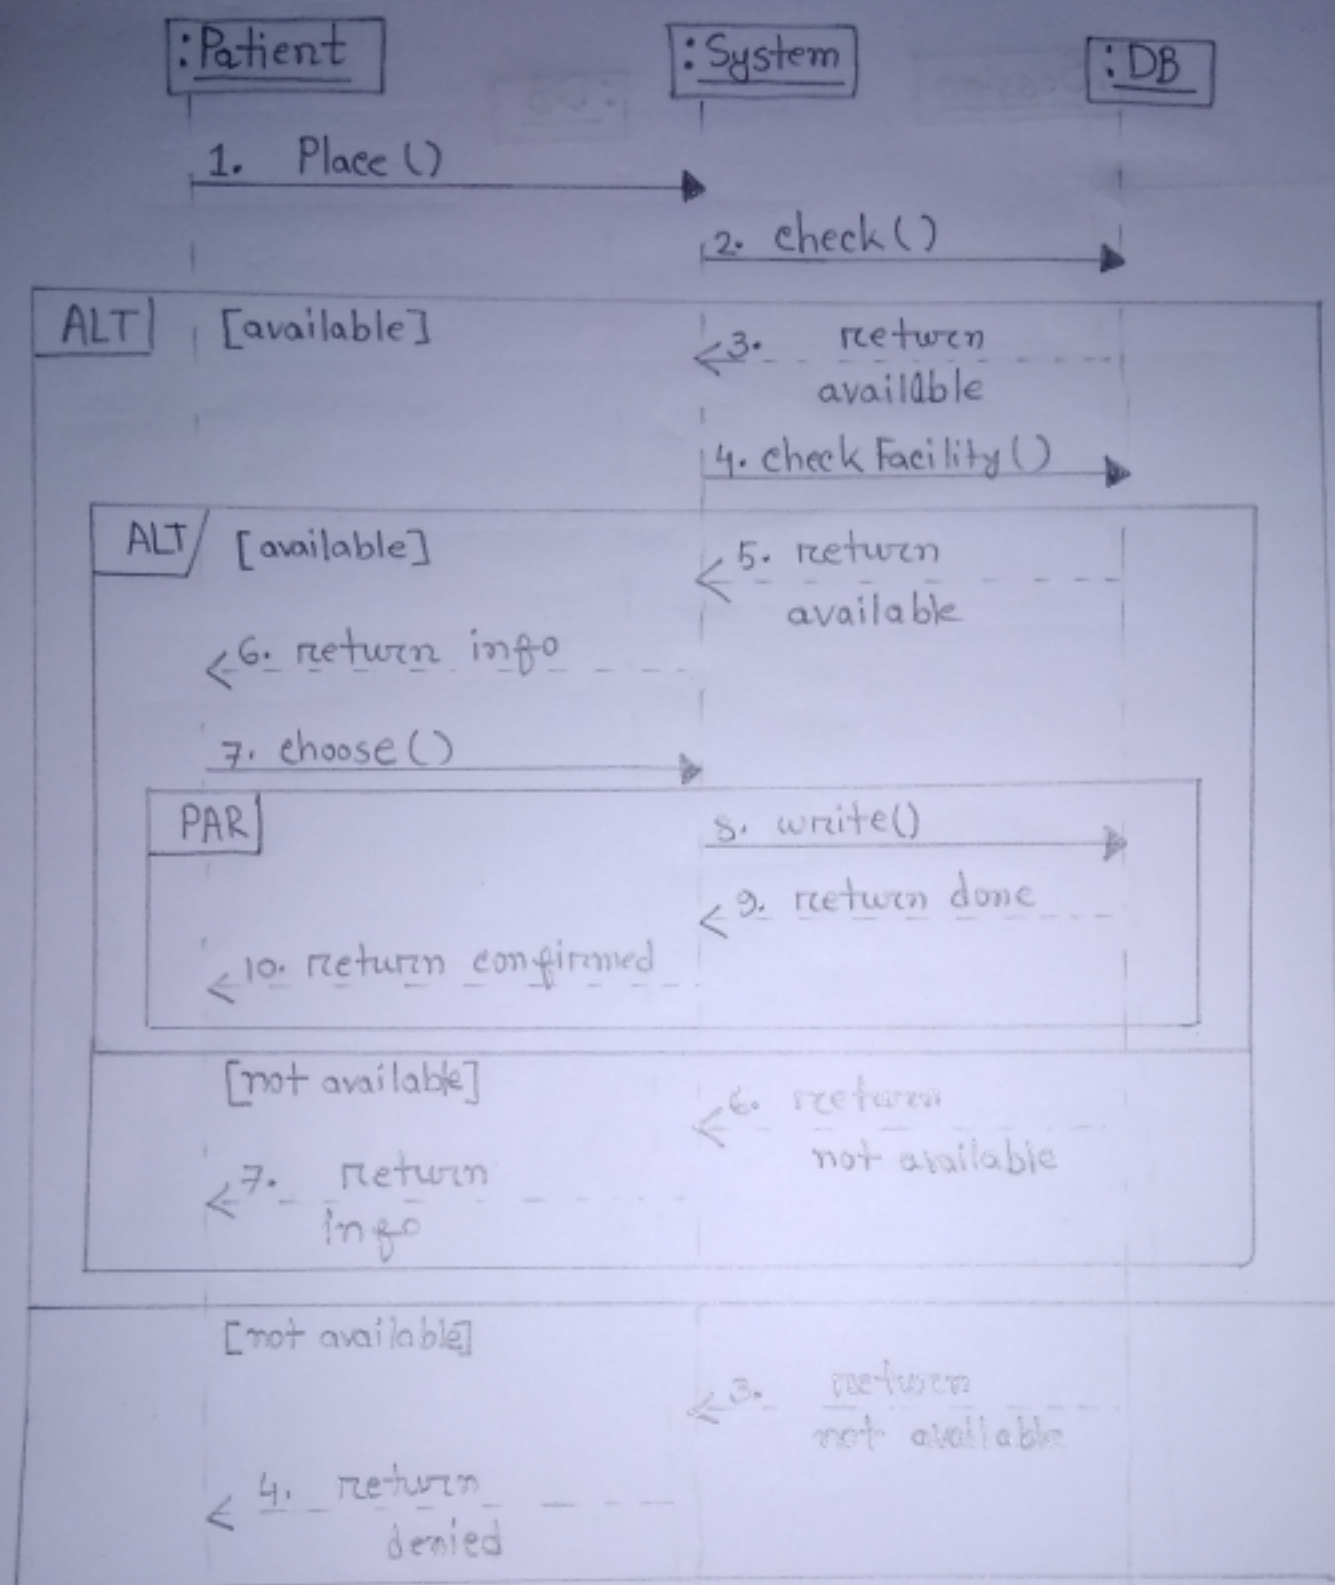 :Patient
:System
:DB
1. Place ()
2. check()
ALT
[available]
3. return
available
4. check Facility()
ALT
[available]
5. return
available
6. return info
7. choose()
PAR
8. write()
9. return done
10. return confirmed
[not available]
6. return
not available
7. return
info
[not available]
3. return
not available
4. return
denied